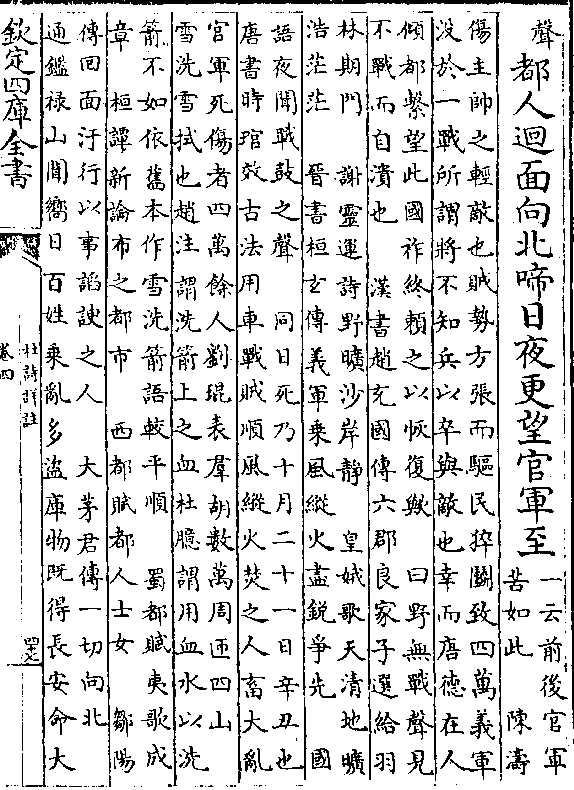 聲都人迴面向北啼日夜更望官軍至一云前後官軍
苦如此　陳濤
傷主帥之輕敵也賊勢方張而驅民捽鬬致四萬義軍
没於一戰所謂將不知兵以卒與敵也幸而唐德在人
傾都繫望此國祚終頼之以恢復歟　曰野無戰聲見
不戰而自潰也　漢書趙充國傳六郡良家子選給羽
林期門　謝靈運詩野曠沙岸静　皇娥歌天清地曠
浩茫茫　晉書桓𤣥傳義軍乗風縱火盡鋭爭先　國
語夜聞戰鼓之聲　同日死乃十月二十一日辛丑也
唐書時琯效古法用車戰賊順風縱火焚之人畜大亂
官軍死傷者四萬餘人劉琨表羣胡數萬周匝四山
雪洗雪拭也趙注謂洗箭上之血杜臆謂用血水以洗
箭不如依舊本作雪洗箭語較平順　蜀都賦夷歌成
章　桓譚新論布之都市　西都賦都人士女　鄒陽
傳回面汙行以事諂諛之人　大茅君傳一切向北
通鑑祿山聞嚮日百姓乗亂多盜庫物既得長安命大
欽定四庫全書
杜詩詳註
卷四